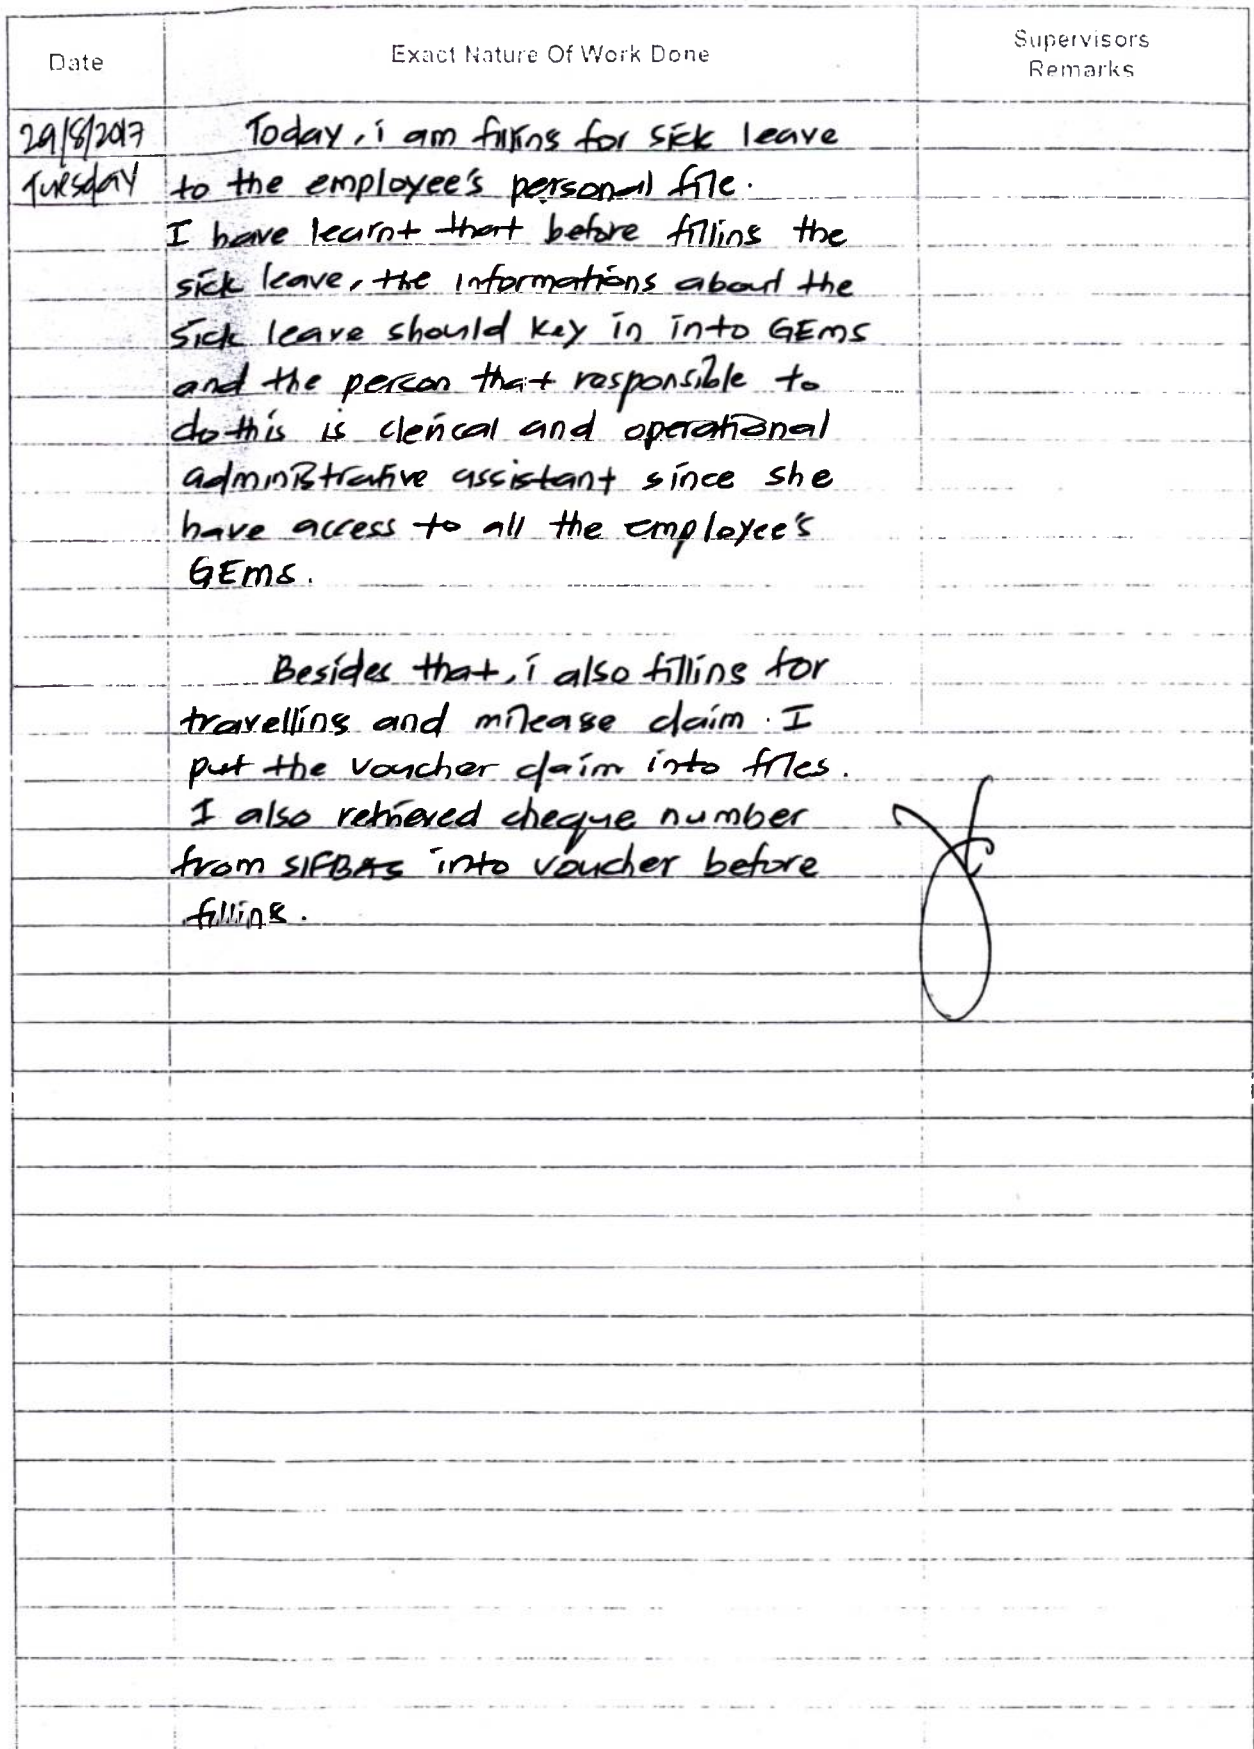 Date
Exact Nature Of Work Done
Supervisors
Remarks
29/8/2017
Tuesday
Today, i am filling for sick leave
to the employee's personal file.
I have learnt that before filling the
sick leave, the informations about the
sick leave should key in into GEMS
and the person that responsible to
do this is clerical and operational
administrative assistant since she
have access to all the employee's
GEMS.
Besides that, i also filling for
travelling and mileage claim. I
put the voucher claim into files.
I also retrieved cheque number
from SIFBAS into voucher before
filling.